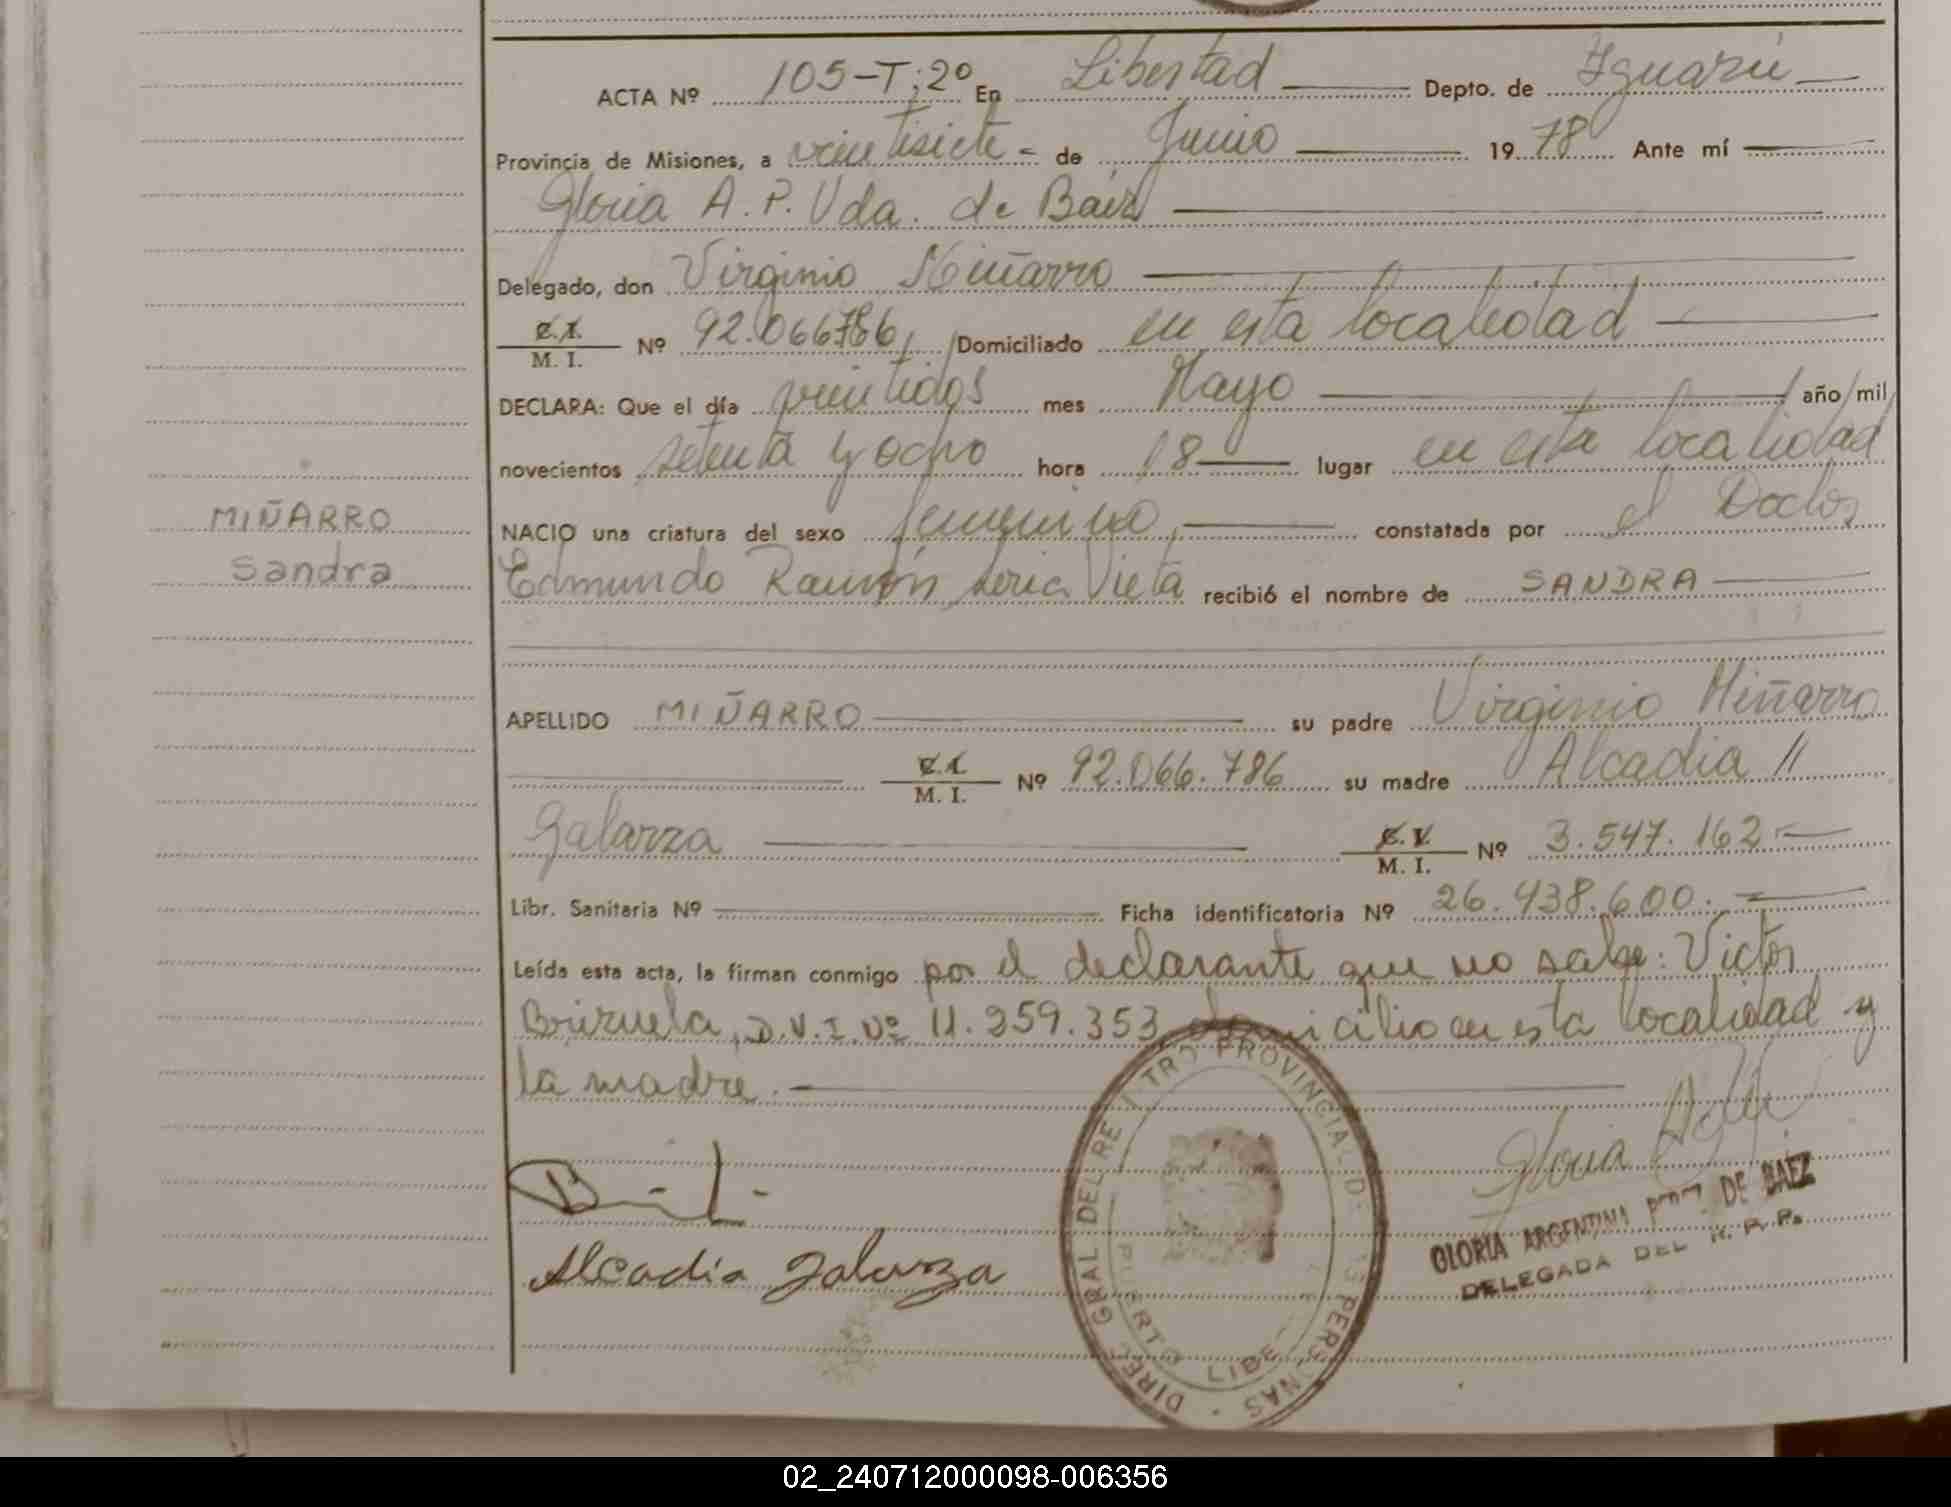 ACTA Nº 105-T:2º En Libertad Depto. de Iguazú
Provincia de Misiones, a veintisiete de Junio 1978 Ante mí
Gloria A. P. Vda. de Báez
Delegado, don Virginio Miñarro
C.I. M. I. Nº 92.066786, Domiciliado en esta localidad
DECLARA: Que el día veintidos mes Mayo año mil
novecientos setenta y ocho hora 18 lugar en esta localidad
NACIO una criatura del sexo femenino constatada por el Doctor
MIÑARRO
Sandra
Edmundo Ramón Vieta recibió el nombre de SANDRA
APELLIDO MIÑARRO su padre Virginio Miñarro
C.I. M. I. Nº 92.066.786 su madre Alcadia
Galarza C.I. M. I. Nº 3.547.162
Libr. Sanitaria Nº Ficha identificatoria Nº 26.438.600.
Leída esta acta, la firman conmigo por el declarante que no sabe: Victor
Brizuela, D.N.I. Nº 11.259.353, domicilio en esta localidad y
la madre.
Alcadia Galarza
Gloria
DIREC. GRAL DEL REGISTRO PROVINCIAL DE LAS PERSONAS
PUERTO LIBERTAD
GLORIA ARGENTINA DE BAEZ
DELEGADA DEL R. P. P.
02_240712000098-006356